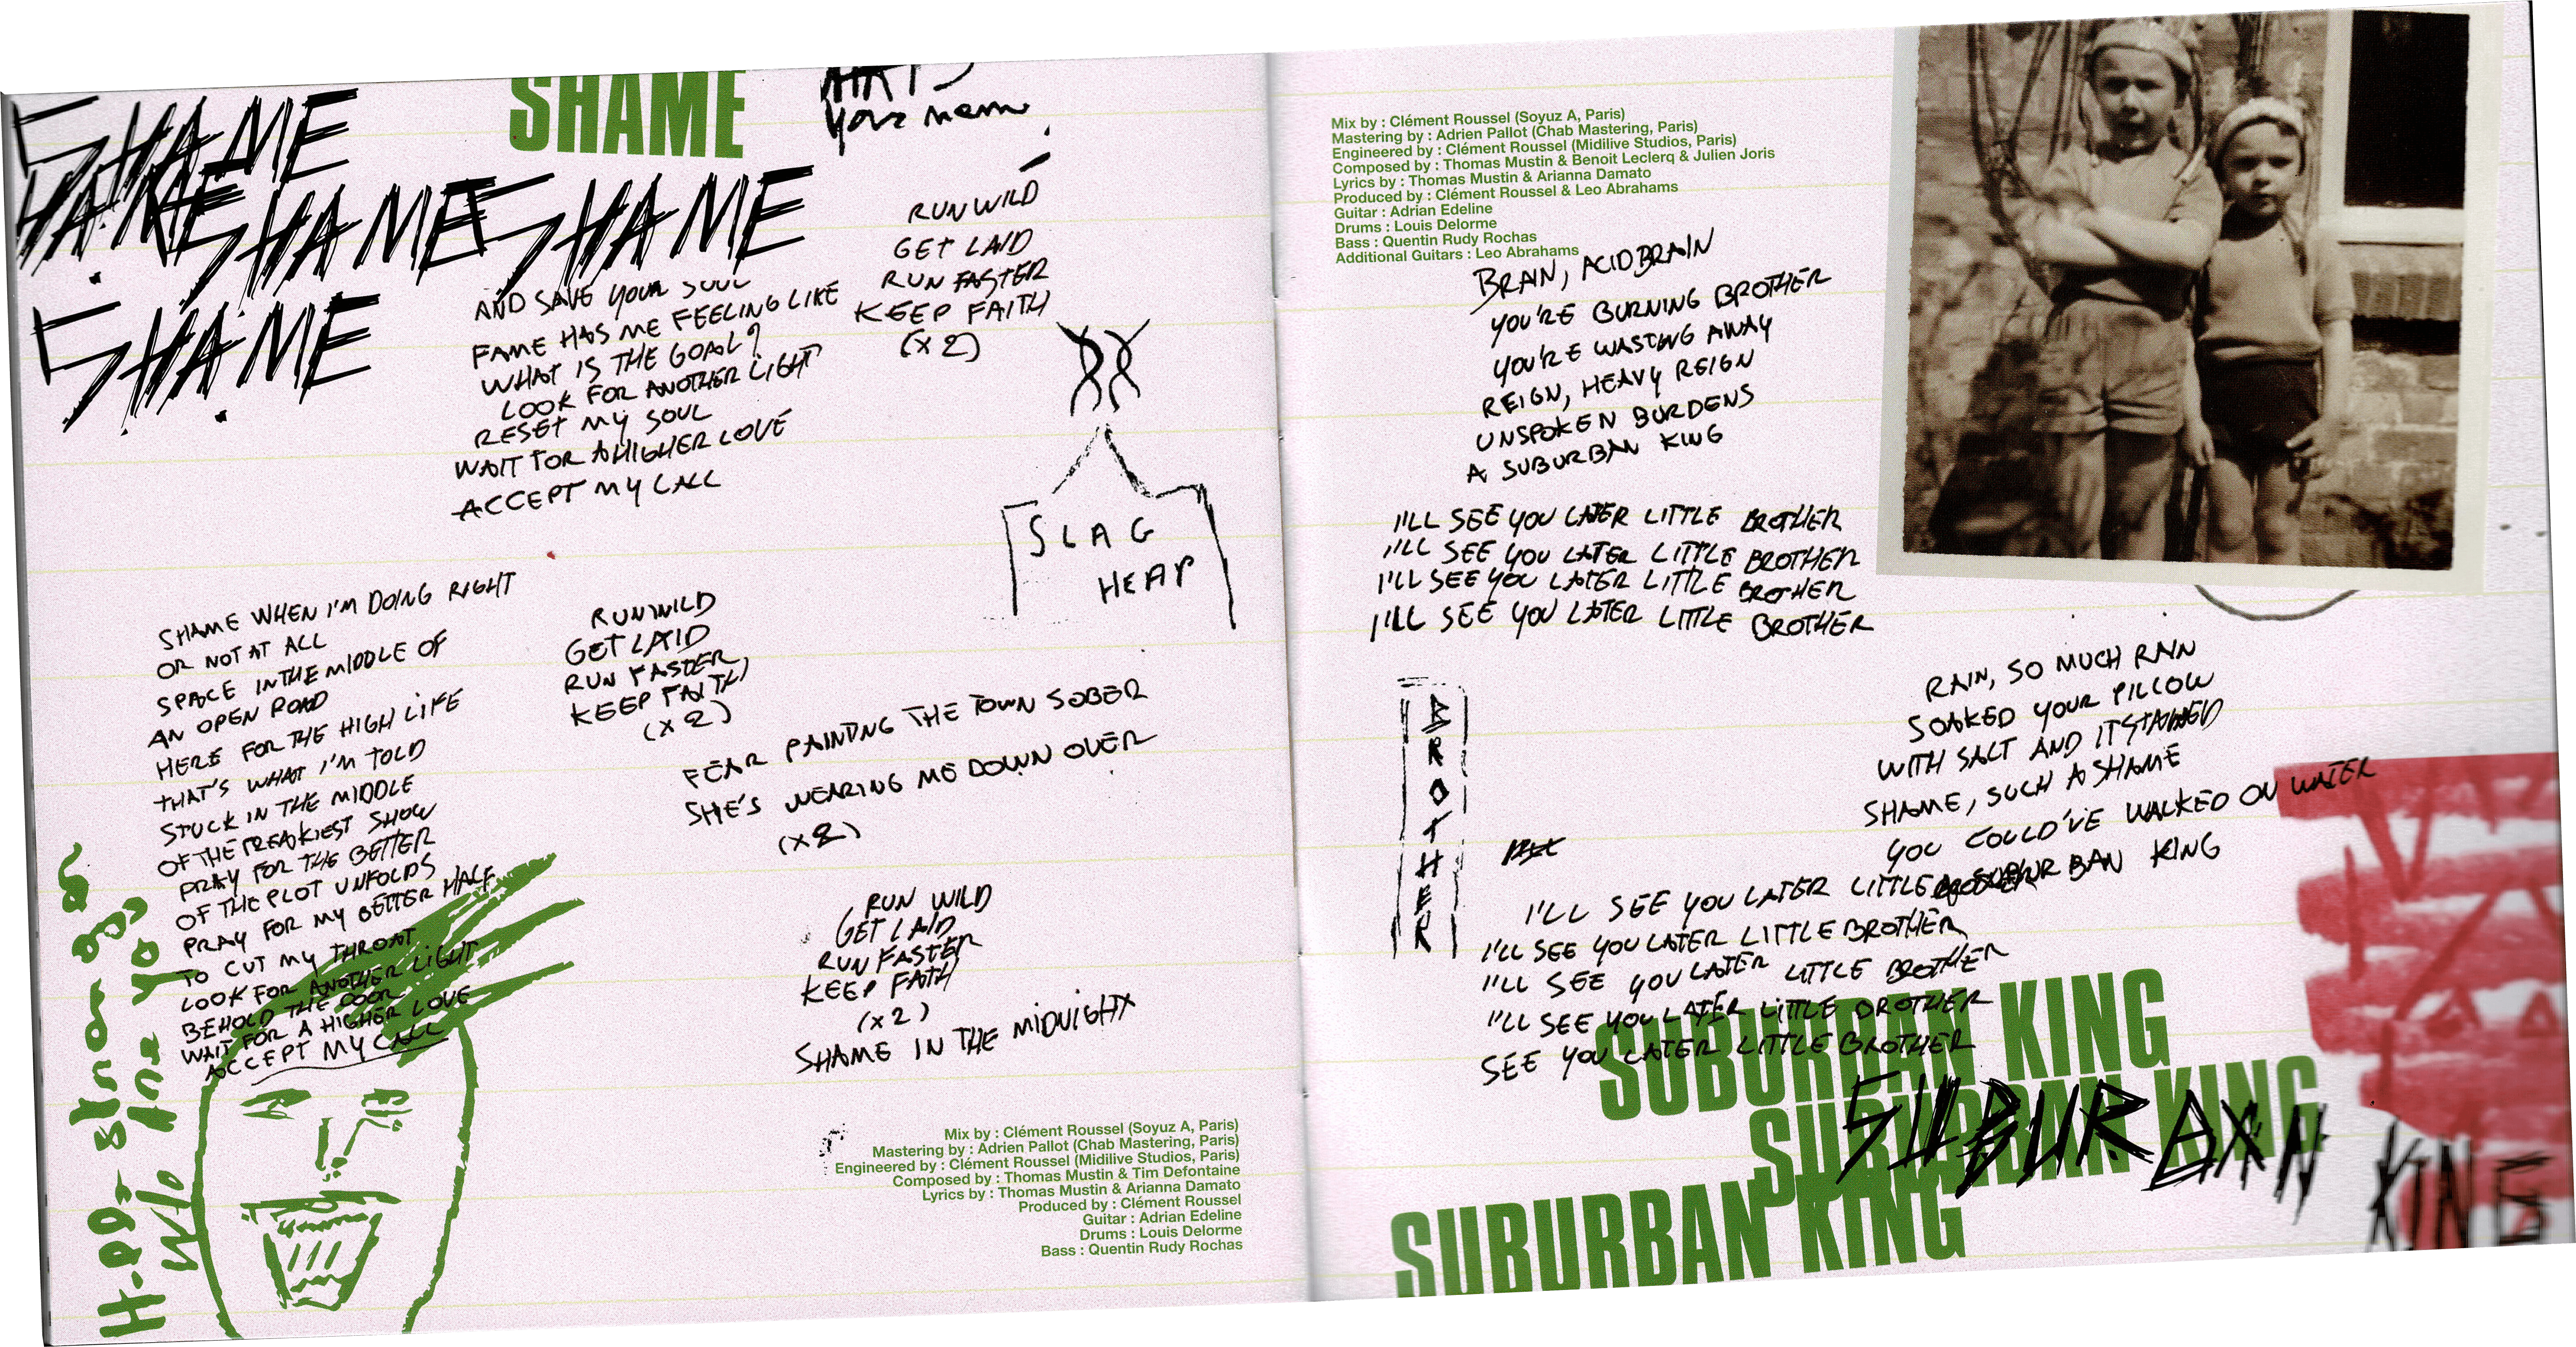 SHAME
SHAME
SHAME
SHAME
SHAME
SHAME
AND SAVE YOUR SOUL
FAME HAS ME FEELING LIKE
WHAT IS THE GOAL?
LOOK FOR ANOTHER LIGHT
RESET MY SOUL
WAIT FOR A HIGHER LOVE
ACCEPT MY CALL
RUN WILD
GET LAID
RUN FASTER
KEEP FAITH
(x2)
SLAG
HEAP
SHAME WHEN I'M DOING RIGHT
OR NOT AT ALL
SPACE IN THE MIDDLE OF
AN OPEN ROAD
HERE FOR THE HIGH LIFE
THAT'S WHAT I'M TOLD
STUCK IN THE MIDDLE
OF THE FREAKIEST SHOW
PRAY FOR THE BETTER
OF THE PLOT UNFOLDS
PRAY FOR MY BETTER HALF
TO CUT MY THROAT
LOOK FOR ANOTHER LIGHT
BEHOLD THE DOOR
WAIT FOR A HIGHER LOVE
ACCEPT MY CALL
RUN WILD
GET LAID
RUN FASTER
KEEP FAITH
(x2)
FEAR PAINTING THE TOWN SOBER
SHE'S WEARING ME DOWN OVER
(x2)
RUN WILD
GET LAID
RUN FASTER
KEEP FAITH
(x2)
SHAME IN THE MIDNIGHT
Mix by : Clément Roussel (Soyuz A, Paris)
Mastering by : Adrien Pallot (Chab Mastering, Paris)
Engineered by : Clément Roussel (Midilive Studios, Paris)
Composed by : Thomas Mustin & Tim Defontaine
Lyrics by : Thomas Mustin & Arianna Damato
Produced by : Clément Roussel
Guitar : Adrian Edeline
Drums : Louis Delorme
Bass : Quentin Rudy Rochas
Mix by : Clément Roussel (Soyuz A, Paris)
Mastering by : Adrien Pallot (Chab Mastering, Paris)
Engineered by : Clément Roussel (Midilive Studios, Paris)
Composed by : Thomas Mustin & Benoit Leclerq & Julien Joris
Lyrics by : Thomas Mustin & Arianna Damato
Produced by : Clément Roussel & Leo Abrahams
Guitar : Adrian Edeline
Drums : Louis Delorme
Bass : Quentin Rudy Rochas
Additional Guitars : Leo Abrahams
BRAIN, ACID BRAIN
YOU'RE BURNING BROTHER
YOU'RE WASTING AWAY
REIGN, HEAVY REIGN
UNSPOKEN BURDENS
A SUBURBAN KING
I'LL SEE YOU LATER LITTLE BROTHER
I'LL SEE YOU LATER LITTLE BROTHER
I'LL SEE YOU LATER LITTLE BROTHER
I'LL SEE YOU LATER LITTLE BROTHER
BROTHER
RAIN, SO MUCH RAIN
SOAKED YOUR PILLOW
WITH SALT AND IT STAINED
SHAME, SUCH A SHAME
YOU COULD'VE WALKED ON WATER
A SUBURBAN KING
I'LL SEE YOU LATER LITTLE BROTHER
I'LL SEE YOU LATER LITTLE BROTHER
I'LL SEE YOU LATER LITTLE BROTHER
I'LL SEE YOU LATER LITTLE BROTHER
SEE YOU LATER LITTLE BROTHER
SUBURBAN KING
SUBURBAN KING
SUBURBAN KING
SUBURBAN KING